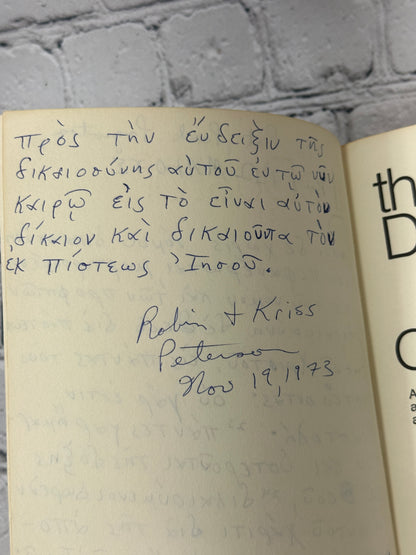 πρὸς τὴν ἔνδειξιν τῆς
δικαιοσύνης αὐτοῦ ἐν τῷ νῦν
καιρῷ εἰς τὸ εἶναι αὐτὸν
δίκαιον καὶ δικαιοῦντα τὸν
ἐκ πίστεως Ἰησοῦ.
Robin + Kriss
Peterson
Nov 19, 1973
th
D